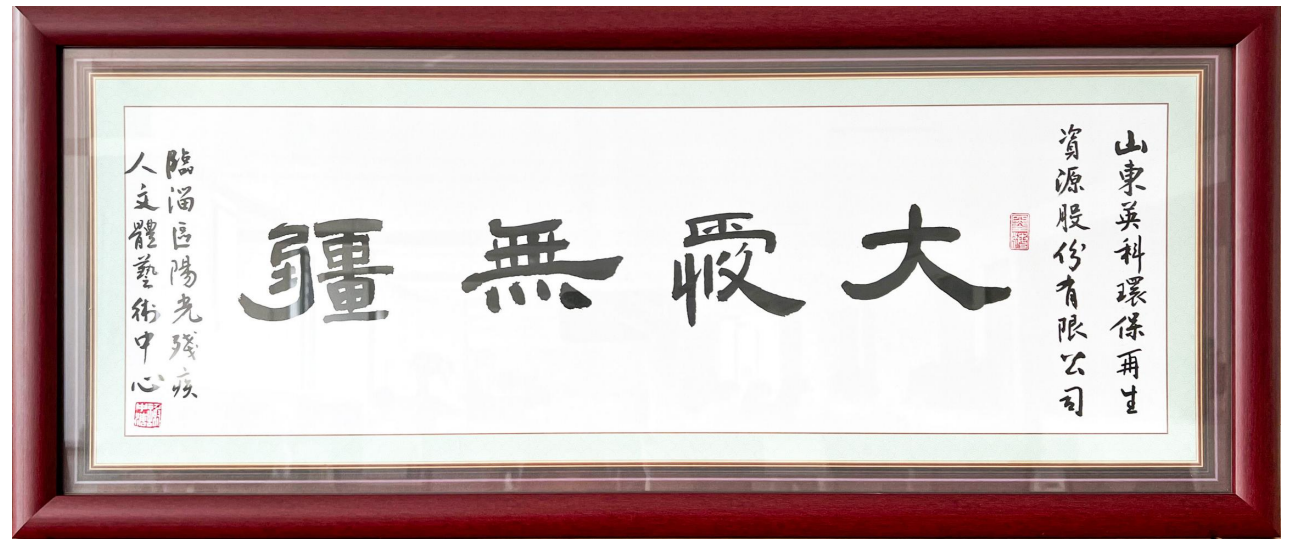 山東英科環保再生
資源股份有限公司
大愛無疆
臨淄區陽光殘疾
人文體藝術中心